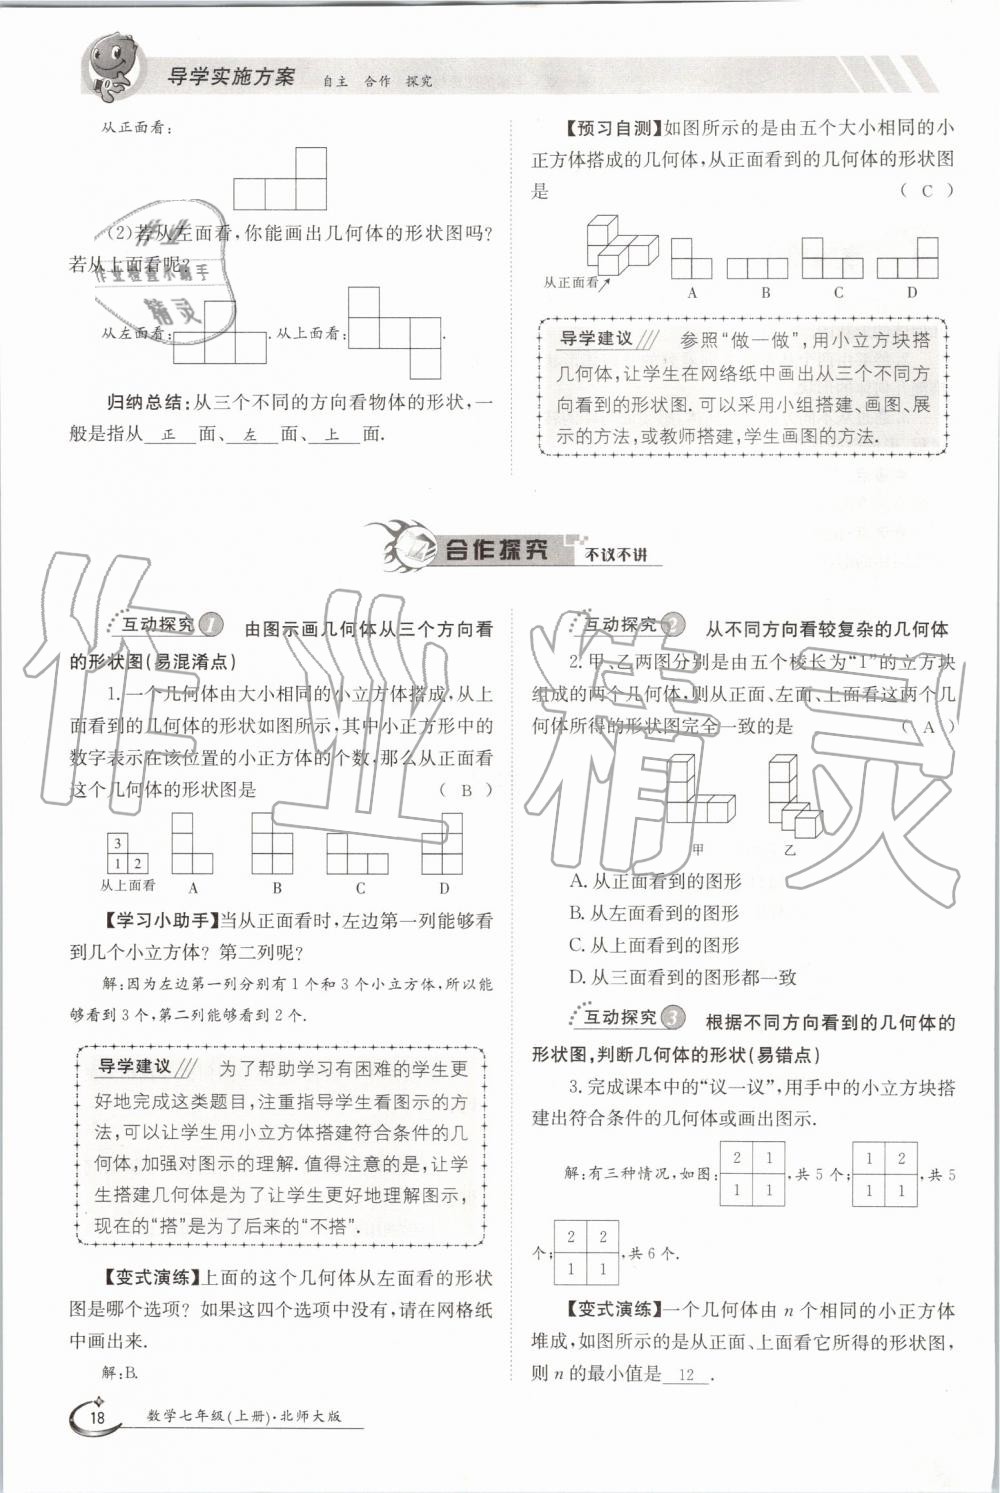 导学实施方案 自主 合作 探究
从正面看:
(2)若从左面看,你能画出几何体的形状图吗?
若从上面看呢?
作业检查小助手
精灵
从左面看: .从上面看: .
归纳总结:从三个不同的方向看物体的形状,一
般是指从 正 面、 左 面、 上 面.
【预习自测】如图所示的是由五个大小相同的小
正方体搭成的几何体,从正面看到的几何体的形状图
是 ( C )
从正面看
A B C D
导学建议 参照“做一做”,用小立方块搭
几何体,让学生在网络纸中画出从三个不同方
向看到的形状图.可以采用小组搭建、画图、展
示的方法,或教师搭建,学生画图的方法.
合作探究 不议不讲
互动探究 1 由图示画几何体从三个方向看
的形状图(易混淆点)
1.一个几何体由大小相同的小立方体搭成,从上
面看到的几何体的形状如图所示,其中小正方形中的
数字表示在该位置的小正方体的个数,那么从正面看
这个几何体的形状图是 ( B )
3
1 2
从上面看 A B C D
【学习小助手】当从正面看时,左边第一列能够看
到几个小立方体? 第二列呢?
解:因为左边第一列分别有1个和3个小立方体,所以能
够看到3个,第二列能够看到2个.
导学建议 为了帮助学习有困难的学生更
好地完成这类题目,注重指导学生看图示的方
法,可以让学生用小立方体搭建符合条件的几
何体,加强对图示的理解.值得注意的是,让学
生搭建几何体是为了让学生更好地理解图示,
现在的“搭”是为了后来的“不搭”.
【变式演练】上面的这个几何体从左面看的形状
图是哪个选项? 如果这四个选项中没有,请在网格纸
中画出来.
解:B.
互动探究 2 从不同方向看较复杂的几何体
2.甲、乙两图分别是由五个棱长为“1”的立方块
组成的两个几何体,则从正面、左面、上面看这两个几
何体所得的形状图完全一致的是 ( A )
甲 乙
A.从正面看到的图形
B.从左面看到的图形
C.从上面看到的图形
D.从三面看到的图形都一致
互动探究 3 根据不同方向看到的几何体的
形状图,判断几何体的形状(易错点)
3.完成课本中的“议一议”,用手中的小立方块搭
建出符合条件的几何体或画出图示.
解:有三种情况,如图: 2 1 1 1 ,共5个; 1 2 1 1 ,共5
个; 2 2 1 1 ,共6个.
【变式演练】一个几何体由 n 个相同的小正方体
堆成,如图所示的是从正面、上面看它所得的形状图,
则 n 的最小值是 12 .
18 数学七年级(上册)·北师大版
作业精灵